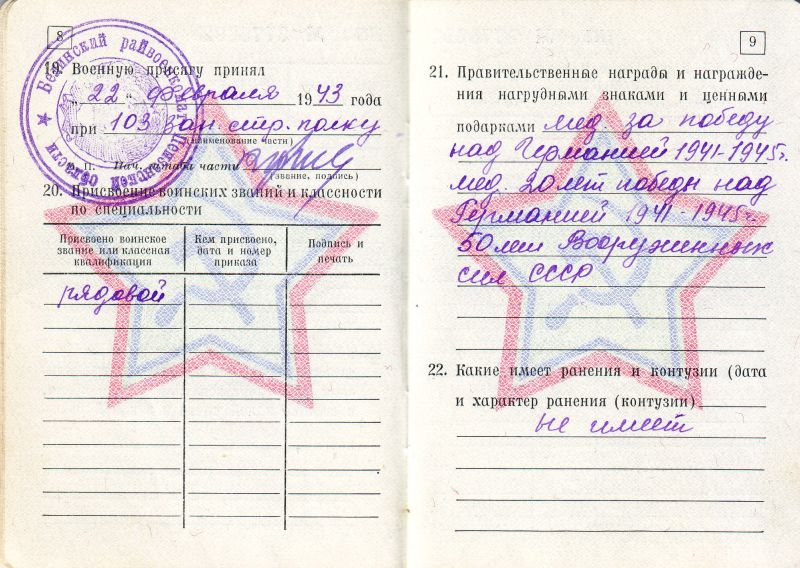 8
19. Военную присягу принял
„ 22 “ февраля 1943 года
при 103 зап. стр. полку
(наименование части)
М. П. Нач. штаба части
(звание, подпись)
20. Присвоение воинских званий и классности
по специальности
Присвоено воинское
звание или классная
квалификация
Кем присвоено,
дата и номер
приказа
Подпись и
печать
рядовой
9
21. Правительственные награды и награжде-
ния нагрудными знаками и ценными
подарками мед за победу
над Германией 1941-1945г.
мед. 20лет победы над
Германией 1941-1945г.
50лет Вооруженных
сил СССР
22. Какие имеет ранения и контузии (дата
и характер ранения (контузии)
не имеет